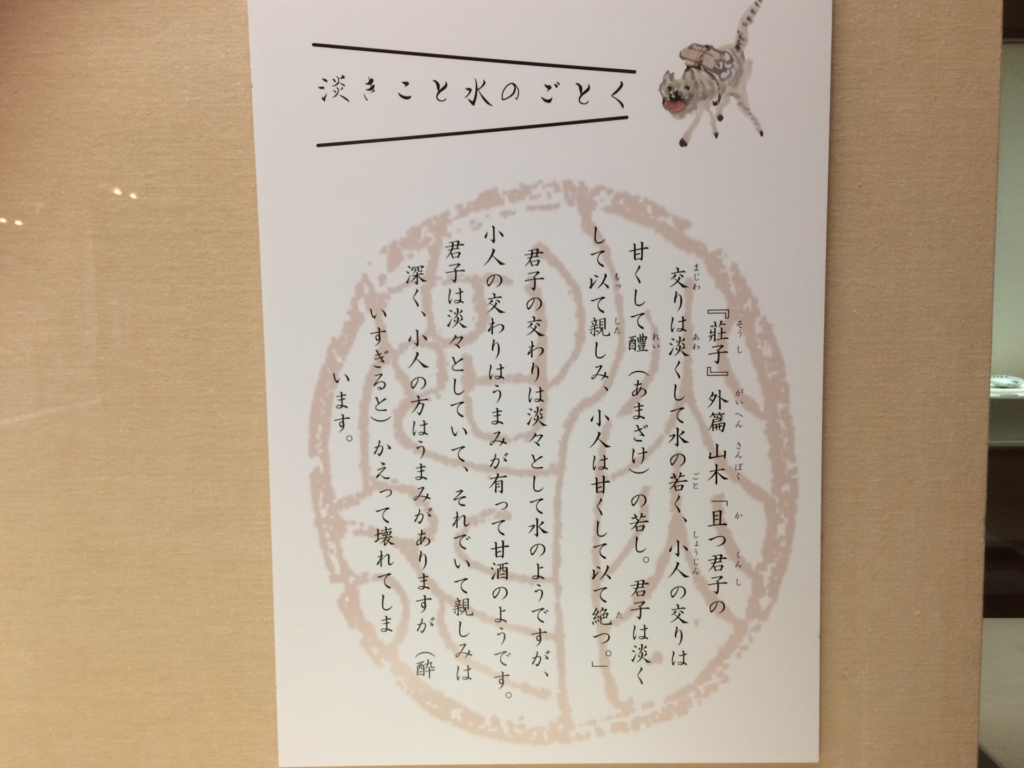 淡きこと水のごとく
『荘子』外篇 山木「且つ君子の
交りは淡くして水の若く、小人の交りは
甘くして醴（あまざけ）の若し。君子は淡く
して以て親しみ、小人は甘くして以て絶つ。」
君子の交わりは淡々として水のようですが、
小人の交わりはうまみが有って甘酒のようです。
君子は淡々としていて、それでいて親しみは
深く、小人の方はうまみがありますが（酔
いすぎると）かえって壊れてしま
います。